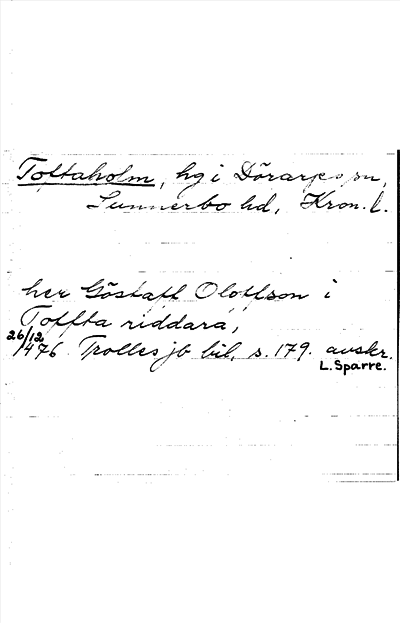 Toftaholm, hg i Dörarps sn,
Sunnerbo hd, Kron. l.
her Göstaff Oloffson i
Toffta riddara,
26/12 1476 Trolles jb bil, s. 179. avskr.
L. Sparre.